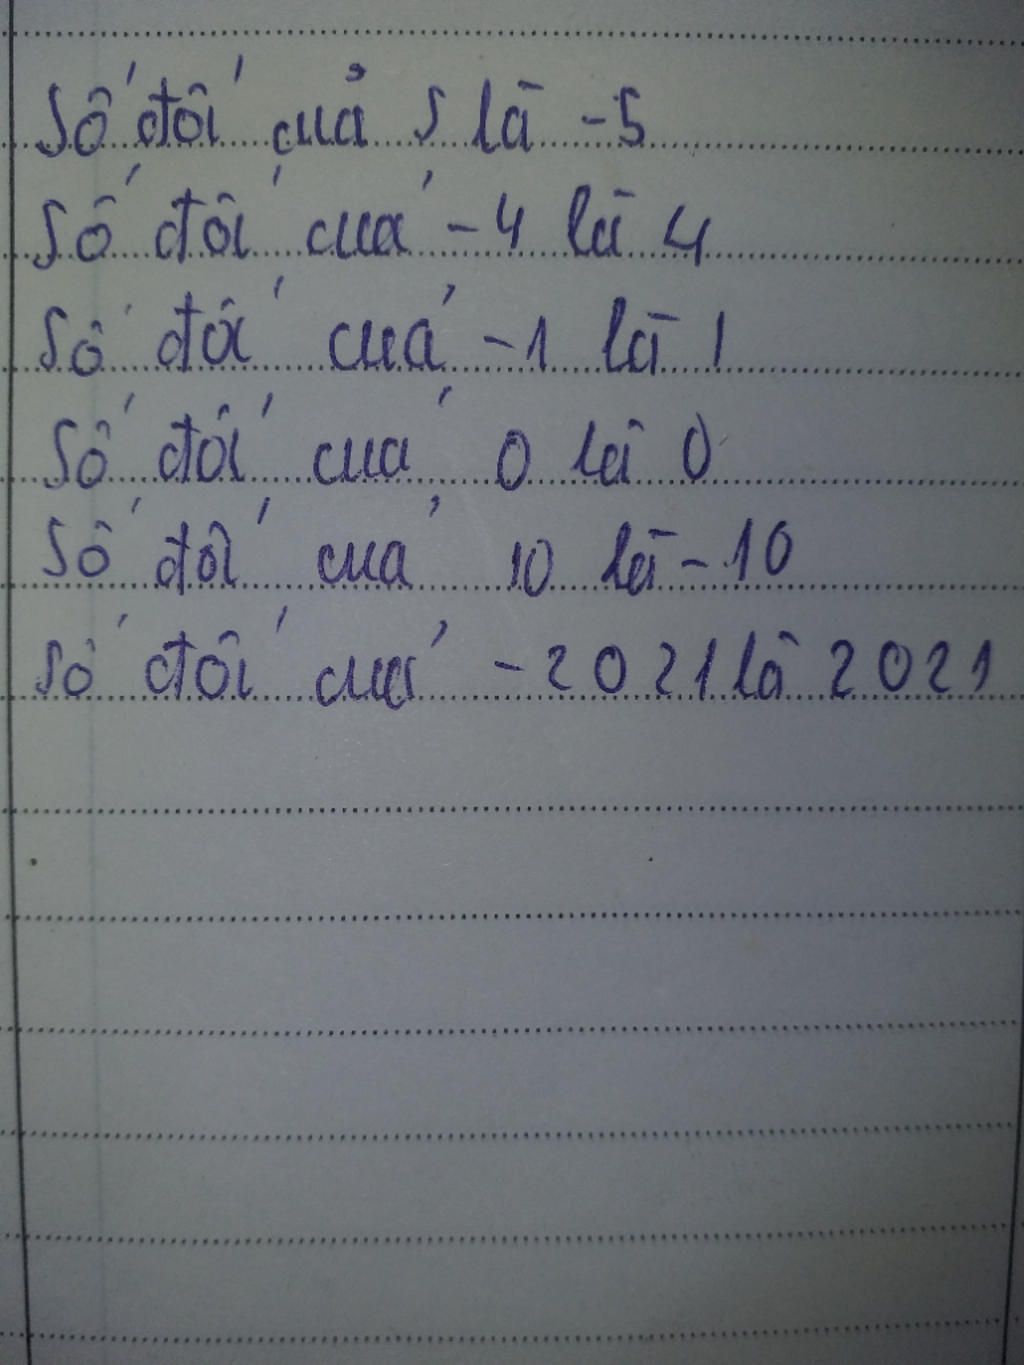 Số đối của 5 là -5
Số đối của -4 là 4
Số đối của -1 là 1
Số đối của 0 là 0
Số đối của 10 là -10
Số đối của -2021 là 2021